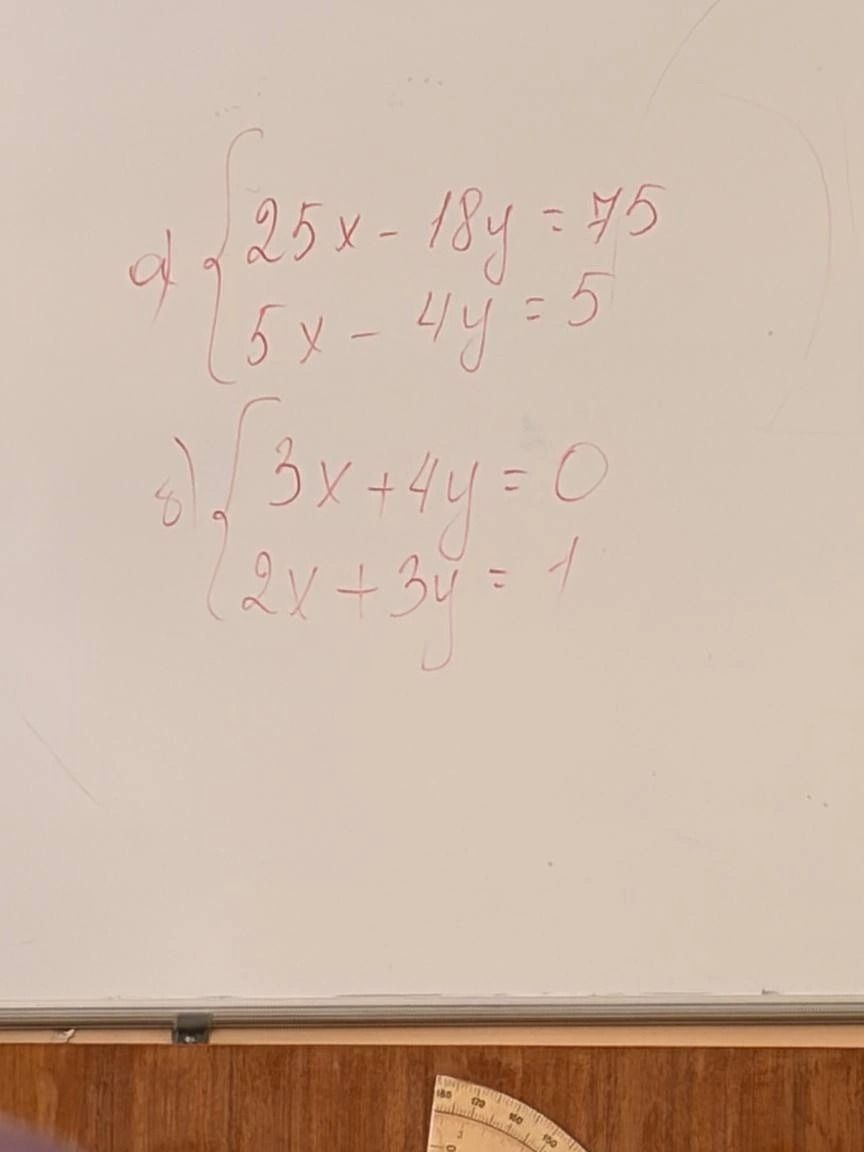 а) { 25x - 18y = 75
5x - 4y = 5
в) { 3x + 4y = 0
2x + 3y = 1
180 170 160 150